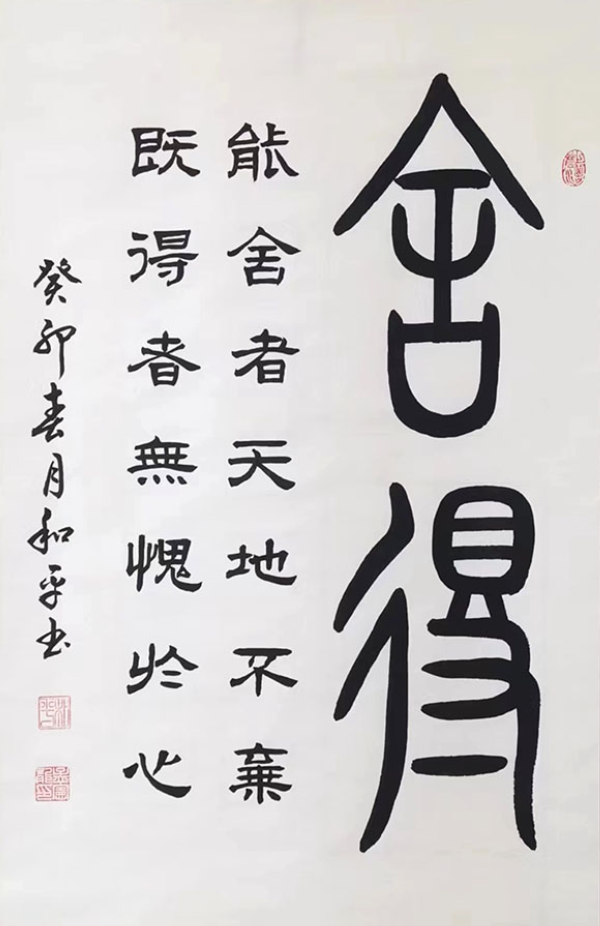 舍得
能舍者天地不棄
既得者無愧於心
癸卯春月和平书